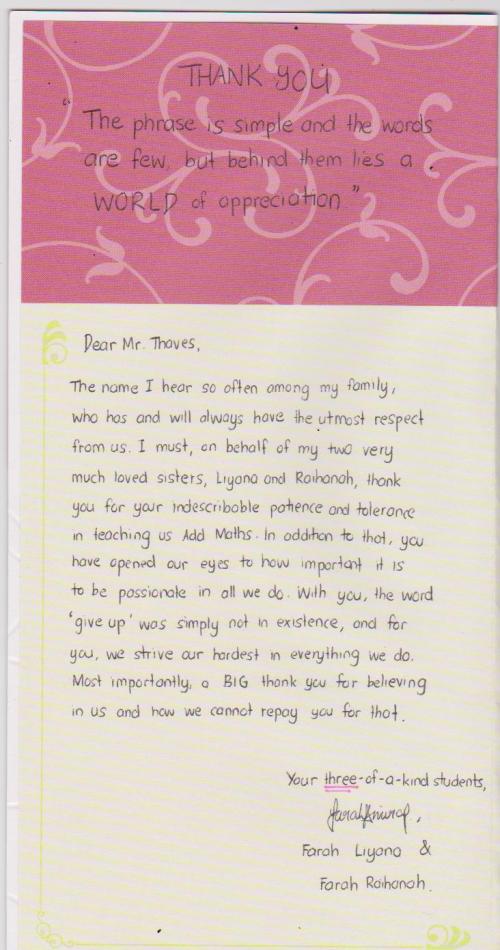 THANK YOU
"The phrase is simple and the words
are few, but behind them lies a
WORLD of appreciation"
Dear Mr. Thaves,
The name I hear so often among my family,
who has and will always have the utmost respect
from us. I must, on behalf of my two very
much loved sisters, Liyana and Raihanah, thank
you for your indescribable patience and tolerance
in teaching us Add Maths. In addition to that, you
have opened our eyes to how important it is
to be passionate in all we do. With you, the word
'give up' was simply not in existence, and for
you, we strive our hardest in everything we do.
Most importantly, a BIG thank you for believing
in us and how we cannot repay you for that.
Your three-of-a-kind students,
Farah Liyana &
Farah Raihanah.